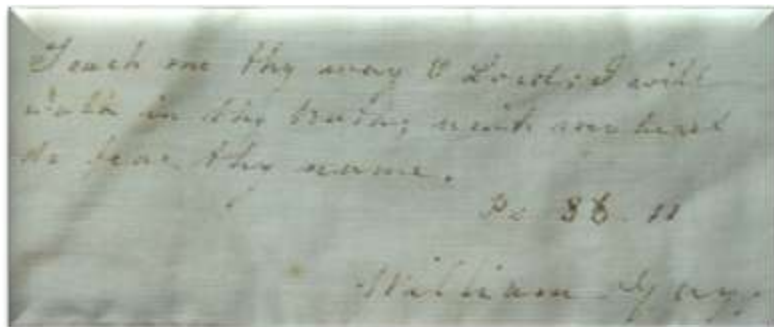 Teach me thy way O Lord; I will
walk in thy truth; unite my heart
to fear thy name.
Ps 86. 11
William Gay.